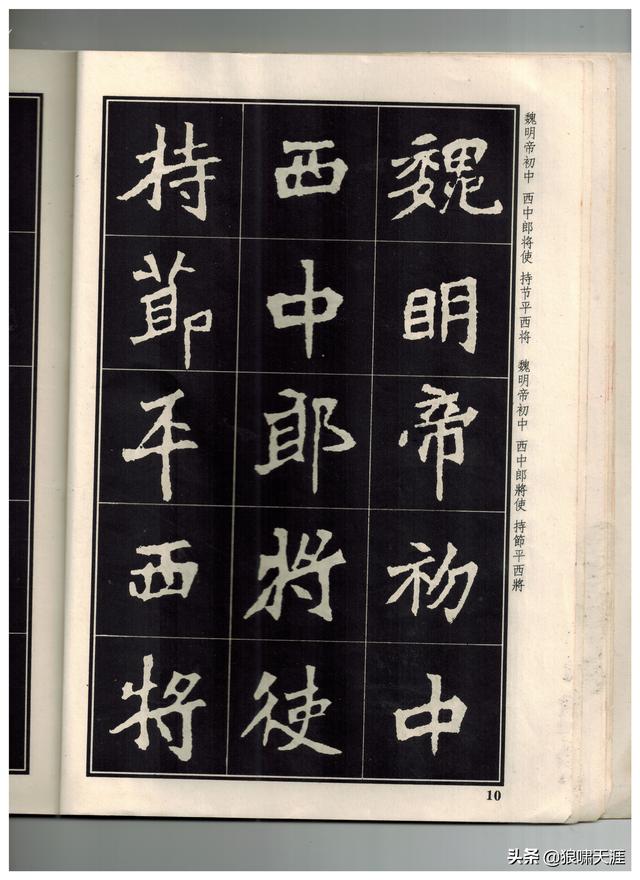 魏明帝初中
西中郎將使
持節平西將
魏明帝初中 西中郎将使 持节平西将 魏明帝初中 西中郎將使 持節平西將
10
头条 @狼啸天涯